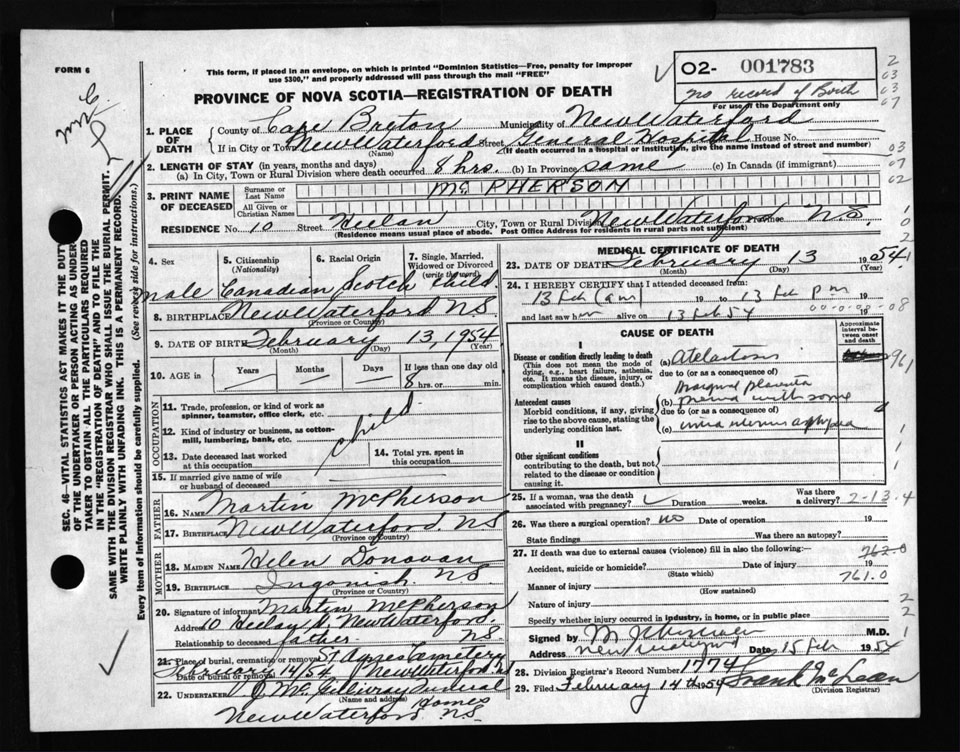 FORM 6
This form, if placed in an envelope, on which is printed "Dominion Statistics—Free, penalty for improper
use $300," and properly addressed will pass through the mail "FREE"
02- 001783
no record of Birth
For use of the Department only
PROVINCE OF NOVA SCOTIA—REGISTRATION OF DEATH
1. PLACE OF DEATH
County of Cape Breton Municipality of New Waterford
If in City or Town New Waterford Street General Hospital House No.
(Name) (If death occurred in a hospital or institution, give the name instead of street and number)
2. LENGTH OF STAY (in years, months and days)
(a) In City, Town or Rural Division where death occurred 8 hrs. (b) In Province same (c) In Canada (if immigrant)
3. PRINT NAME OF DECEASED
Surname or Last Name Mc PHERSON
All Given or Christian Names
RESIDENCE No. 10 Street Heelan City, Town or Rural Division New Waterford Province N.S.
(Residence means usual place of abode. Post Office Address for residents in rural parts not sufficient)
4. Sex male
5. Citizenship (Nationality) Canadian
6. Racial Origin Scotch
7. Single, Married, Widowed or Divorced (write the word) Child.
8. BIRTHPLACE New Waterford N.S.
(Province or Country)
9. DATE OF BIRTH February 13, 1954
(Month) (Day) (Year)
10. AGE Years Months Days If less than one day old
8 hrs. or min.
OCCUPATION
11. Trade, profession, or kind of work as spinner, teamster, office clerk, etc.
12. Kind of industry or business, as cotten-mill, lumbering, bank, etc.
child
13. Date deceased last worked at this occupation
14. Total yrs. spent in this occupation
15. If married give name of wife or husband of deceased
FATHER
16. NAME Martin McPherson
17. BIRTHPLACE New Waterford. N.S
(Province or Country)
MOTHER
18. MAIDEN NAME Helen Donovan
19. BIRTHPLACE Ingonish. N.S.
(Province or Country)
20. Signature of informant Martin McPherson
Address 10 Heelan St New Waterford. N.S
Relationship to deceased father.
21. Place of burial, cremation or removal St Agnes Cemetery
Date of burial or removal February 14/54 New Waterford
22. UNDERTAKER J. McGillivray Funeral Homes
(Name and address)
New Waterford N.S.
MEDICAL CERTIFICATE OF DEATH
23. DATE OF DEATH February 13 1954
(Month) (Day) (Year)
24. I HEREBY CERTIFY that I attended deceased from:
13 Feb (am) 19 to 13 Feb pm 19
and last saw him alive on 13 Feb 54 19
CAUSE OF DEATH
Approximate interval between onset and death
I
Disease or condition directly leading to death
(This does not mean the mode of dying, e.g., heart failure, asthenia, etc. It means the disease, injury, or complication which caused death.)
(a) Atelectasis
due to (or as a consequence of)
Antecedent causes
Morbid conditions, if any, giving rise to the above cause, stating the underlying condition last.
Marginal placenta
(b) previa with some
due to (or as a consequence of)
(c) intra uterine asphyxia
II
Other significant conditions
contributing to the death, but not related to the disease or condition causing it.
25. If a woman, was the death associated with pregnancy? Duration weeks. Was there a delivery? 2-13-4
26. Was there a surgical operation? no Date of operation 19
State findings Was there an autopsy?
27. If death was due to external causes (violence) fill in also the following:— 762.0
Accident, suicide or homicide? Date of injury 19
(State which) 761.0
Manner of injury
(How sustained)
Nature of injury
Specify whether injury occurred in industry, in home, or in public place
Signed by M.D.
Address New Waterford Date 15 Feb 1954
28. Division Registrar's Record Number 1774
29. Filed February 14th 1954 Frank McLean
(Division Registrar)
SEC. 46—VITAL STATISTICS ACT MAKES IT THE DUTY
OF THE UNDERTAKER OR PERSON ACTING AS UNDERTAKER TO OBTAIN ALL THE PARTICULARS REQUIRED
IN THE "REGISTRATION OF DEATH" AND TO FILE THE
SAME WITH THE DIVISION REGISTRAR WHO SHALL ISSUE THE BURIAL PERMIT.
WRITE PLAINLY WITH UNFADING INK. THIS IS A PERMANENT RECORD.
Every item of information should be carefully supplied. (See reverse side for instructions.)